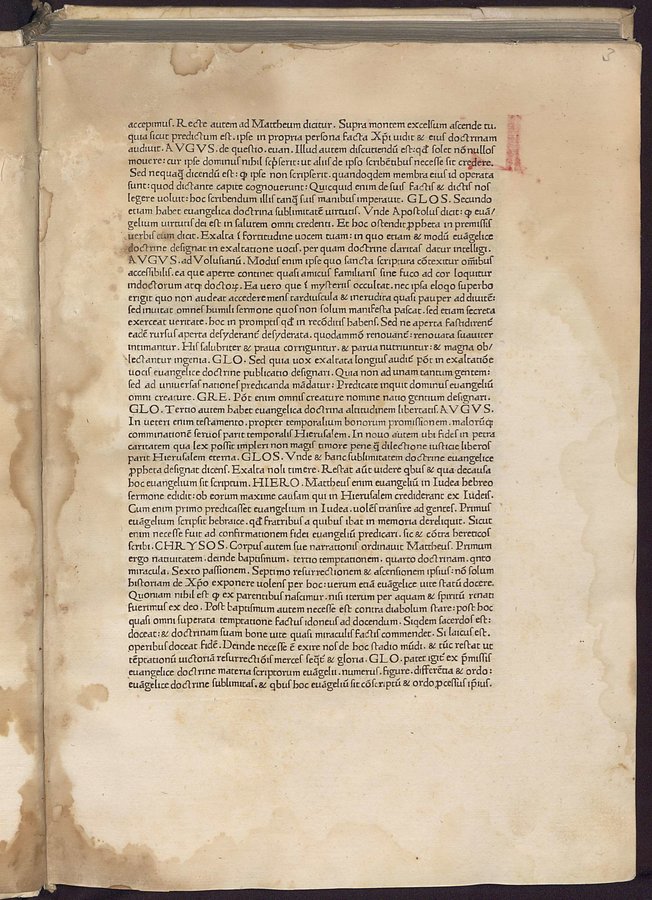 3
accepimus. Recte autem ad Mattheum dicitur. Supra montem excelsum ascende tu.
quia sicut predictum est. ipse in propria persona facta Xp̄i uidit & eius doctrinam
audiuit. AVGVS. de questio. euan. Illud autem discutiendū est: qđ solet nō nullos
mouere: cur ipse dominus nihil scp̄serit: ut aliis de ipso scribētibus necesse sit credere.
Sed nequaq̄ dicendū est: ꝙ ipse non scripserit. quandoqdem membra eius id operata
sunt: quod dictante capite cognouerunt: Quicquid enim de suis factis & dictis nos
legere uoluit: hoc scribendum illis tanq̄ suis manibus imperauit. GLOS. Secundo
etiam habet euangelica doctrina sublimitatē uirtutis. Vnde Apostolus dicit: ꝙ euā/
gelium uirtus dei est in salutem omni credenti. Et hoc ostendit ꝓpheta in premissis
uerbis cum dicit. Exalta ī fortitudine uocem tuam: in quo etiam & modū euāgelice
doctrine designat in exaltatione uocis. per quam doctrine claritas datur intelligi.
AVGVS. ad Volusianū. Modus enim ipse quo sancta scriptura cōtexitur oībus
accessibilis. ea que aperte continet quasi amicus familiaris sine fuco ad cor loquitur
indoctorum atq doctoꝝ. Ea uero que ī mysteriis occultat. nec ipsa eloqo superbo
erigit quo non audeat accedere mens tardiuscula & inerudita quasi pauper ad diuitē:
sed inuitat omnes humili sermone quos non solum manifesta pascat. sed etiam secreta
exerceat ueritate. hoc in promptis qđ in recōditis habens. Sed ne aperta fastidirent̄
eadē rursus aperta desiderant̄ desyderata. quodammō renouant̄: renouata suauiter
intimantur. His salubriter & praua corriguntur. & parua nutriuntur: & magna ob/
lectantur ingenia. GLO. Sed quia uox exaltata longius audit̄ pōt in exaltatiōe
uocis euangelice doctrine publicatio designari. Quia non ad unam tantum gentem:
sed ad uniuersas nationes predicanda mādatur: Predicate inquit dominus euangeliū
omni creature. GRE. Pōt enim omnis creature nomine natio gentium designari.
GLO. Tertio autem habet euangelica doctrina altitudinem libertatis AVGVS.
In ueteri enim testamento. propter temporalium bonorum promissionem. maloruꝫq
comminationē seruos parit temporalis Hierusalem. In nouo autem ubi fides in petra
caritatem qua lex possit impleri non magis timore pene q̄ dilectione iusticie liberos
parit Hierusalem eterna. GLOS. Vnde & hanc sublimitatem doctrine euangelice
ꝓpheta designat dicens. Exalta noli timere. Restat aūt uidere qbus & qua decausa
hoc euangelium sit scriptum. HIERO. Mattheus enim euangeliū in Iudea hebreo
sermone edidit: ob eorum maxime causam qui in Hierusalem crediderant ex Iudeis.
Cum enim primo predicasset euangelium in Iudea. uolēs transire ad gentes. Primus
euāgelium scripsit hebraice. qđ fratribus a quibus ibat in memoria dereliquit. Sicut
enim necesse fuit ad confirmationem fidei euangeliū predicari. sic & cōtra hereticos
scribi. CHRYSOS. Corpus autem sue narrationis ordinauit Mattheus. Primum
ergo natiuitatem. deinde baptismum. tertio temptationem. quarto doctrinam. qnto
miracula. Sexto passionem. Septimo resurrectionem & ascensionem ipsius: nō solum
historiam de Xp̄o exponere uolens per hoc: uerum etiā euāgelice uite statū docere.
Quoniam nihil est ꝙ ex parentibus nascimur. nisi iterum per aquam & spiritū renati
fuerimus ex deo. Post baptismum autem necesse est contra diabolum stare: post hoc
quasi omni superata temptatione factus idoneus ad docendum. Siqdem sacerdos est:
doceat: & doctrinam suam bone uite quasi miraculis factis commendet. Si laicus est.
operibus doceat fidē. Deinde necesse ē exire nos de hoc stadio mūdi. & tūc restat ut
tēptationū uictoriā resurrectiōis merces seqt̄ & gloria. GLO. patet igit̄ ex p̄missis
euangelice doctrine materia scriptorum euāgelii. numerus. figure. differētia & ordo:
euāgelice doctrine sublimitas. & qbus hoc euāgeliū sit cōscriptū & ordo ꝓcessus ipsius.